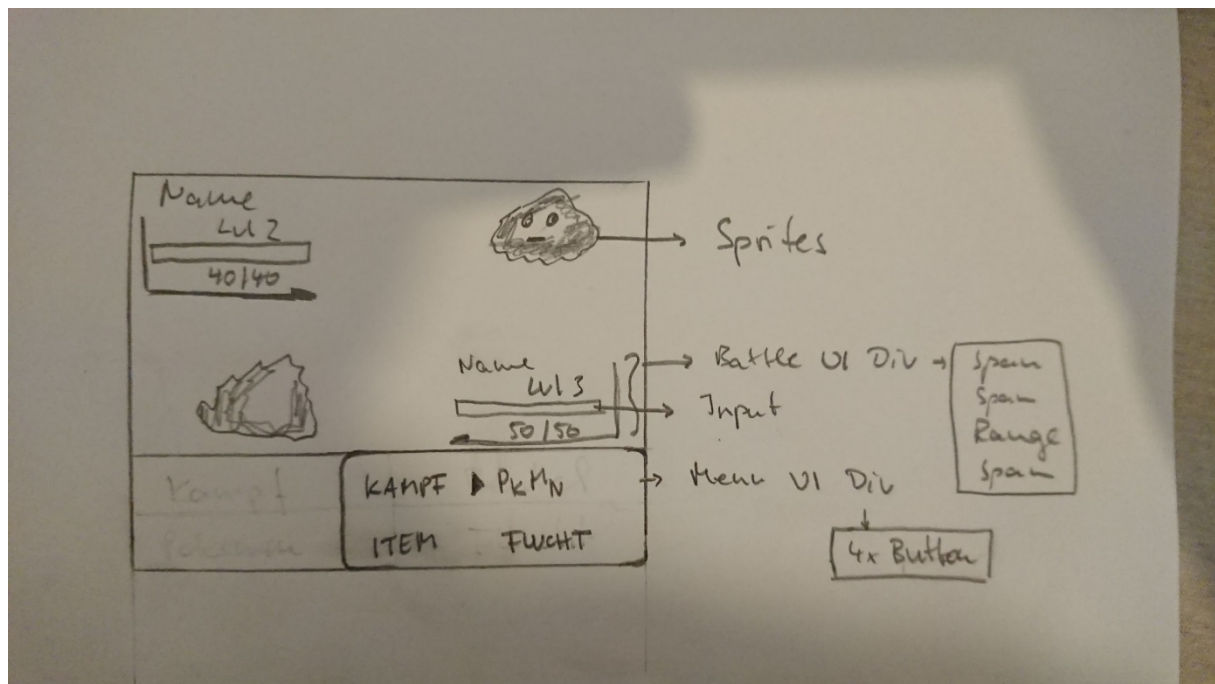 Name
Lvl 2
40/40
Sprites
Name
Lvl 3
50/50
Battle UI Div
Span
Span
Range
Span
Input
Kampf
KAMPF PKMN
ITEM FLUCHT
Menu UI Div
4x Button